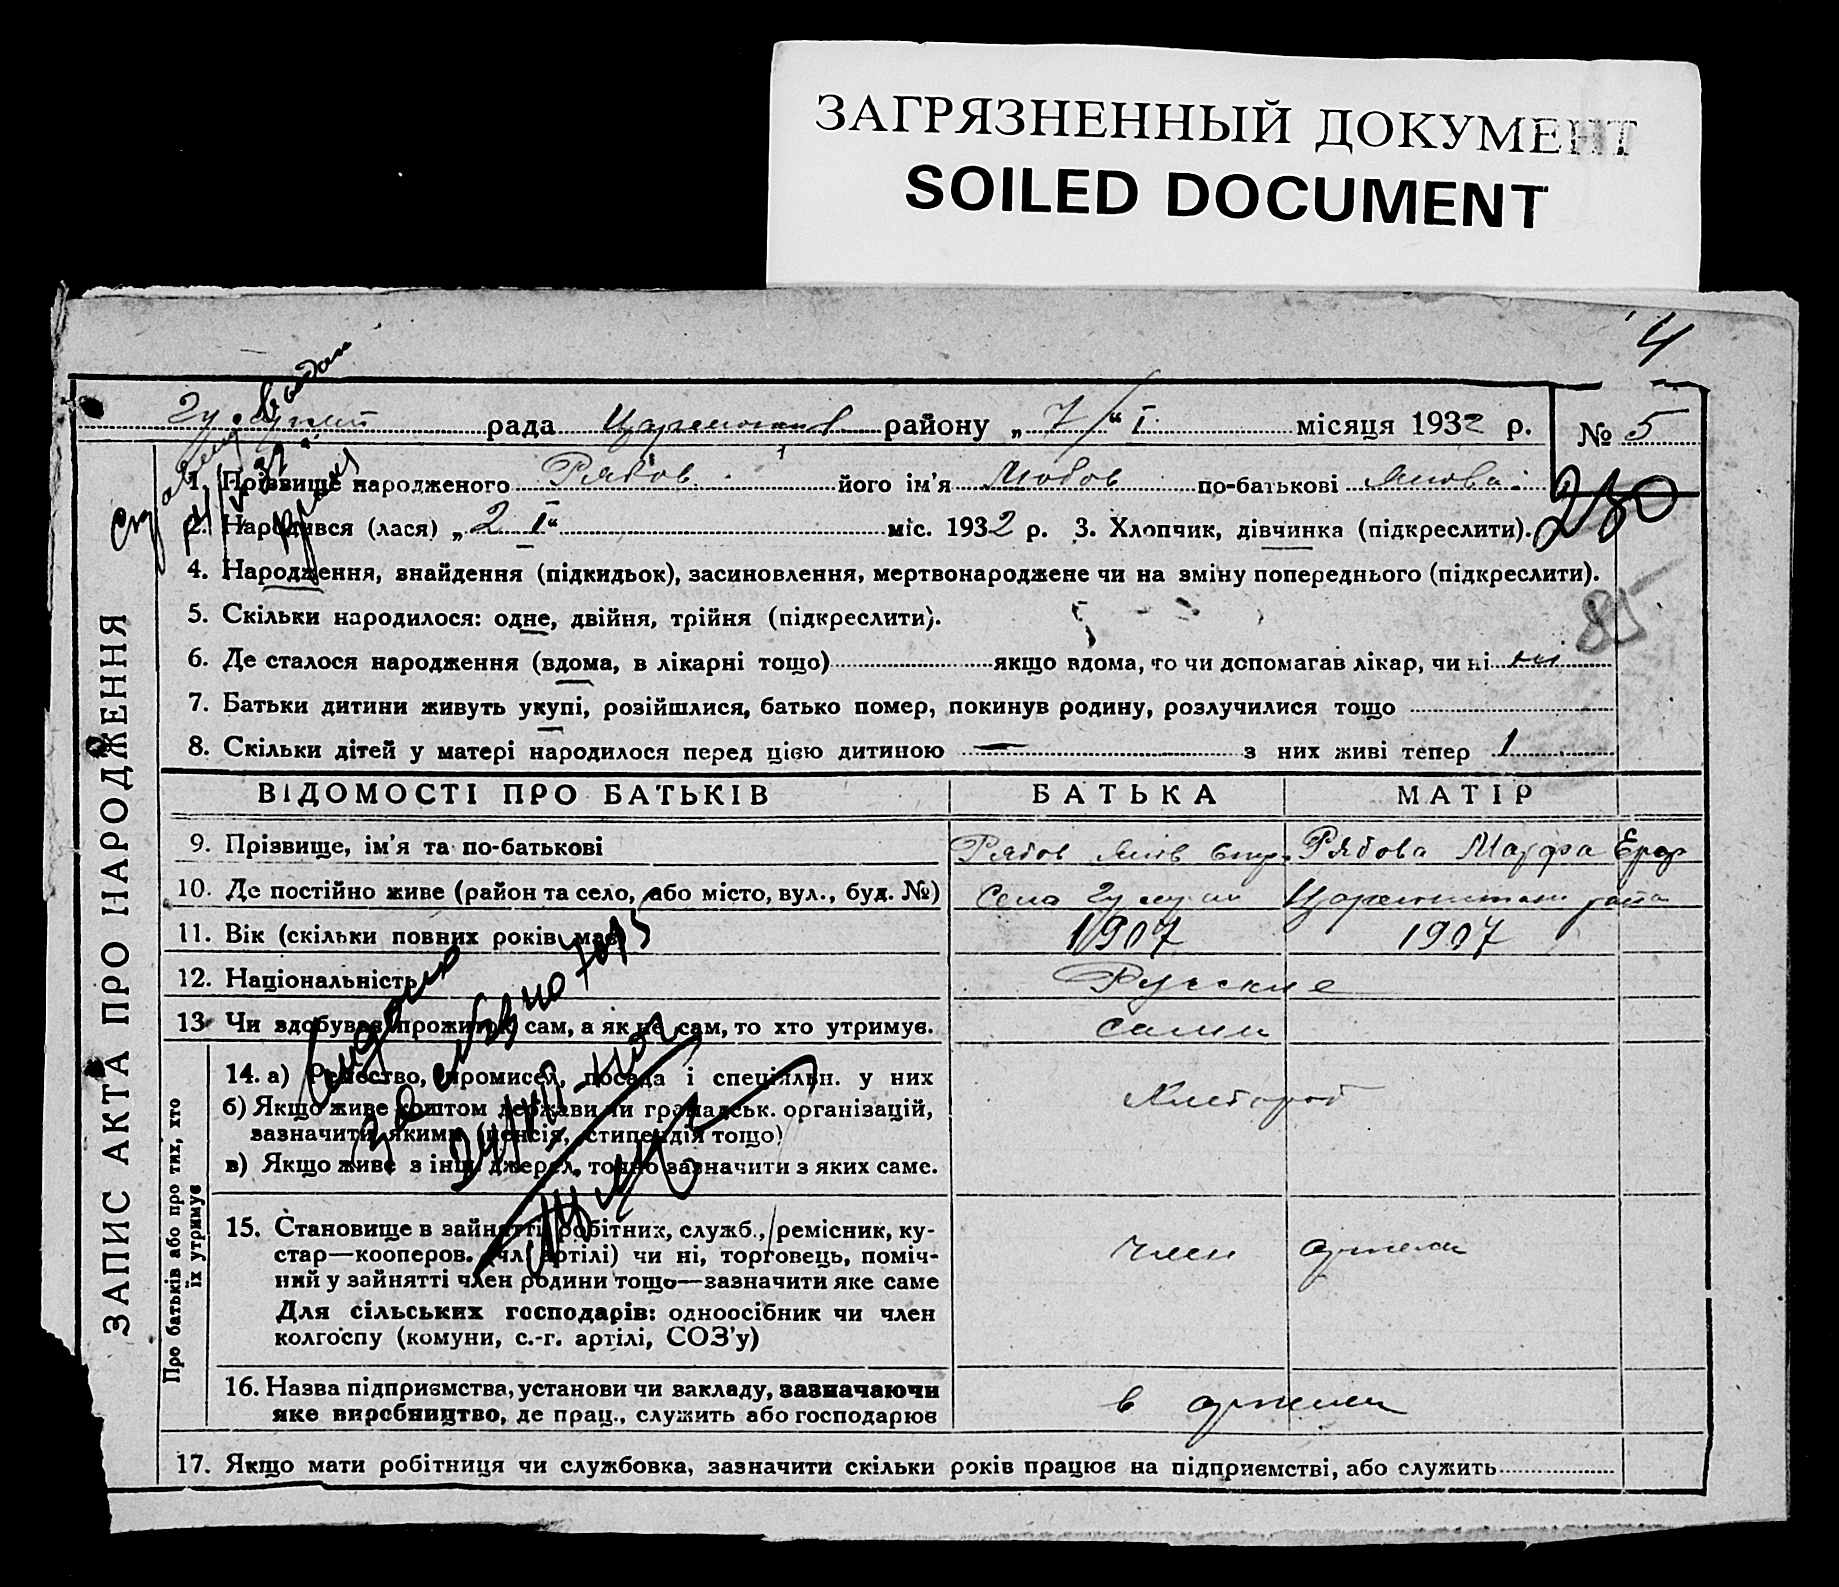 ЗАГРЯЗНЕННЫЙ ДОКУМЕНТ
SOILED DOCUMENT
4
рада району „ 7/“ I місяця 1932 р. № 5
1. Прізвище народженого Рябов його ім'я Любов по-батькові
280
2. Народився (лася) „ 2 I“ міс. 1932 р. 3. Хлопчик, дівчинка (підкреслити).
4. Народження, знайдення (підкидьок), засиновлення, мертвонароджене чи на зміну попереднього (підкреслити).
85
5. Скільки народилося: одне, двійня, трійня (підкреслити).
6. Де сталося народження (вдома, в лікарні тощо) якщо вдома, то чи допомагав лікар, чи ні ні
7. Батьки дитини живуть укупі, розійшлися, батько помер, покинув родину, розлучилися тощо
8. Скільки дітей у матері народилося перед цією дитиною — з них живі тепер 1
ЗАПИС АКТА ПРО НАРОДЖЕННЯ
ВІДОМОСТІ ПРО БАТЬКІВ БАТЬКА МАТІР
9. Прізвище, ім'я та по-батькові Рябов Яків Рябова Марфа
10. Де постійно живе (район та село, або місто, вул., буд. №) Село
11. Вік (скільки повних років має) 1907 1907
12. Національність Русские
13. Чи здобував прожиток сам, а як не сам, то хто утримує. сами
Про батьків або про тих, хто
їх утримує
14. а) Ремество, промисел, посада і спеціяльн. у них Хлебороб
б) Якщо живе коштом держави чи громадськ. організацій,
зазначити якими (пенсія, стипендія тощо)
в) Якщо живе з інш. джерел, точно зазначити з яких саме.
15. Становище в зайнятті робітних, служб., ремісник, ку-
стар—кооперов. (чл. артілі) чи ні, торговець, поміч- член артели
ний у зайнятті член родини тощо—зазначити яке саме
Для сільських господарів: одноосібник чи член
колгоспу (комуни, с.-г. артілі, СОЗ'у)
16. Назва підприємства, установи чи закладу, зазначаючи
яке виробництво, де прац., служить або господарює в артели
17. Якщо мати робітниця чи службовка, зазначити скільки років працює на підприємстві, або служить